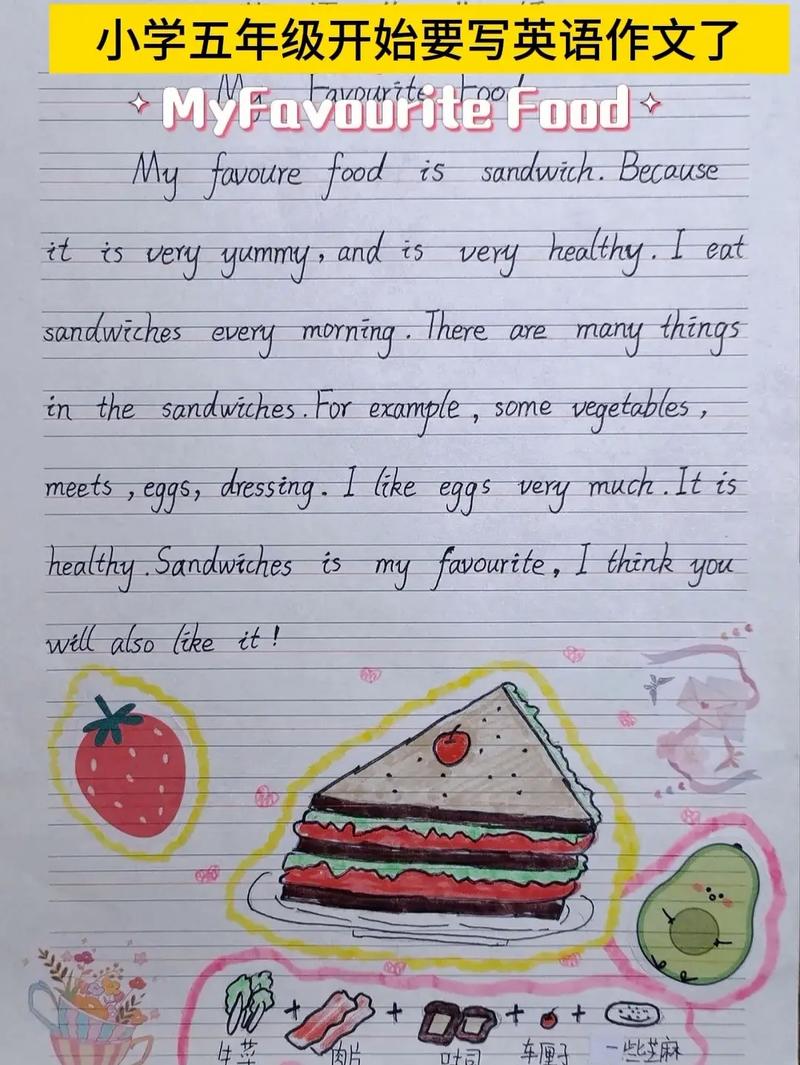 小学五年级开始要写英语作文了
My Favourite Food
MyFavourite Food
My favoure food is sandwich. Because
it is very yummy, and is very healthy. I eat
sandwiches every morning. There are many things
in the sandwiches. For example, some vegetables,
meets, eggs, dressing. I like eggs very much. It is
healthy. Sandwiches is my favourite, I think you
will also like it!
生菜 肉片 吐司 车厘子 一些芝麻